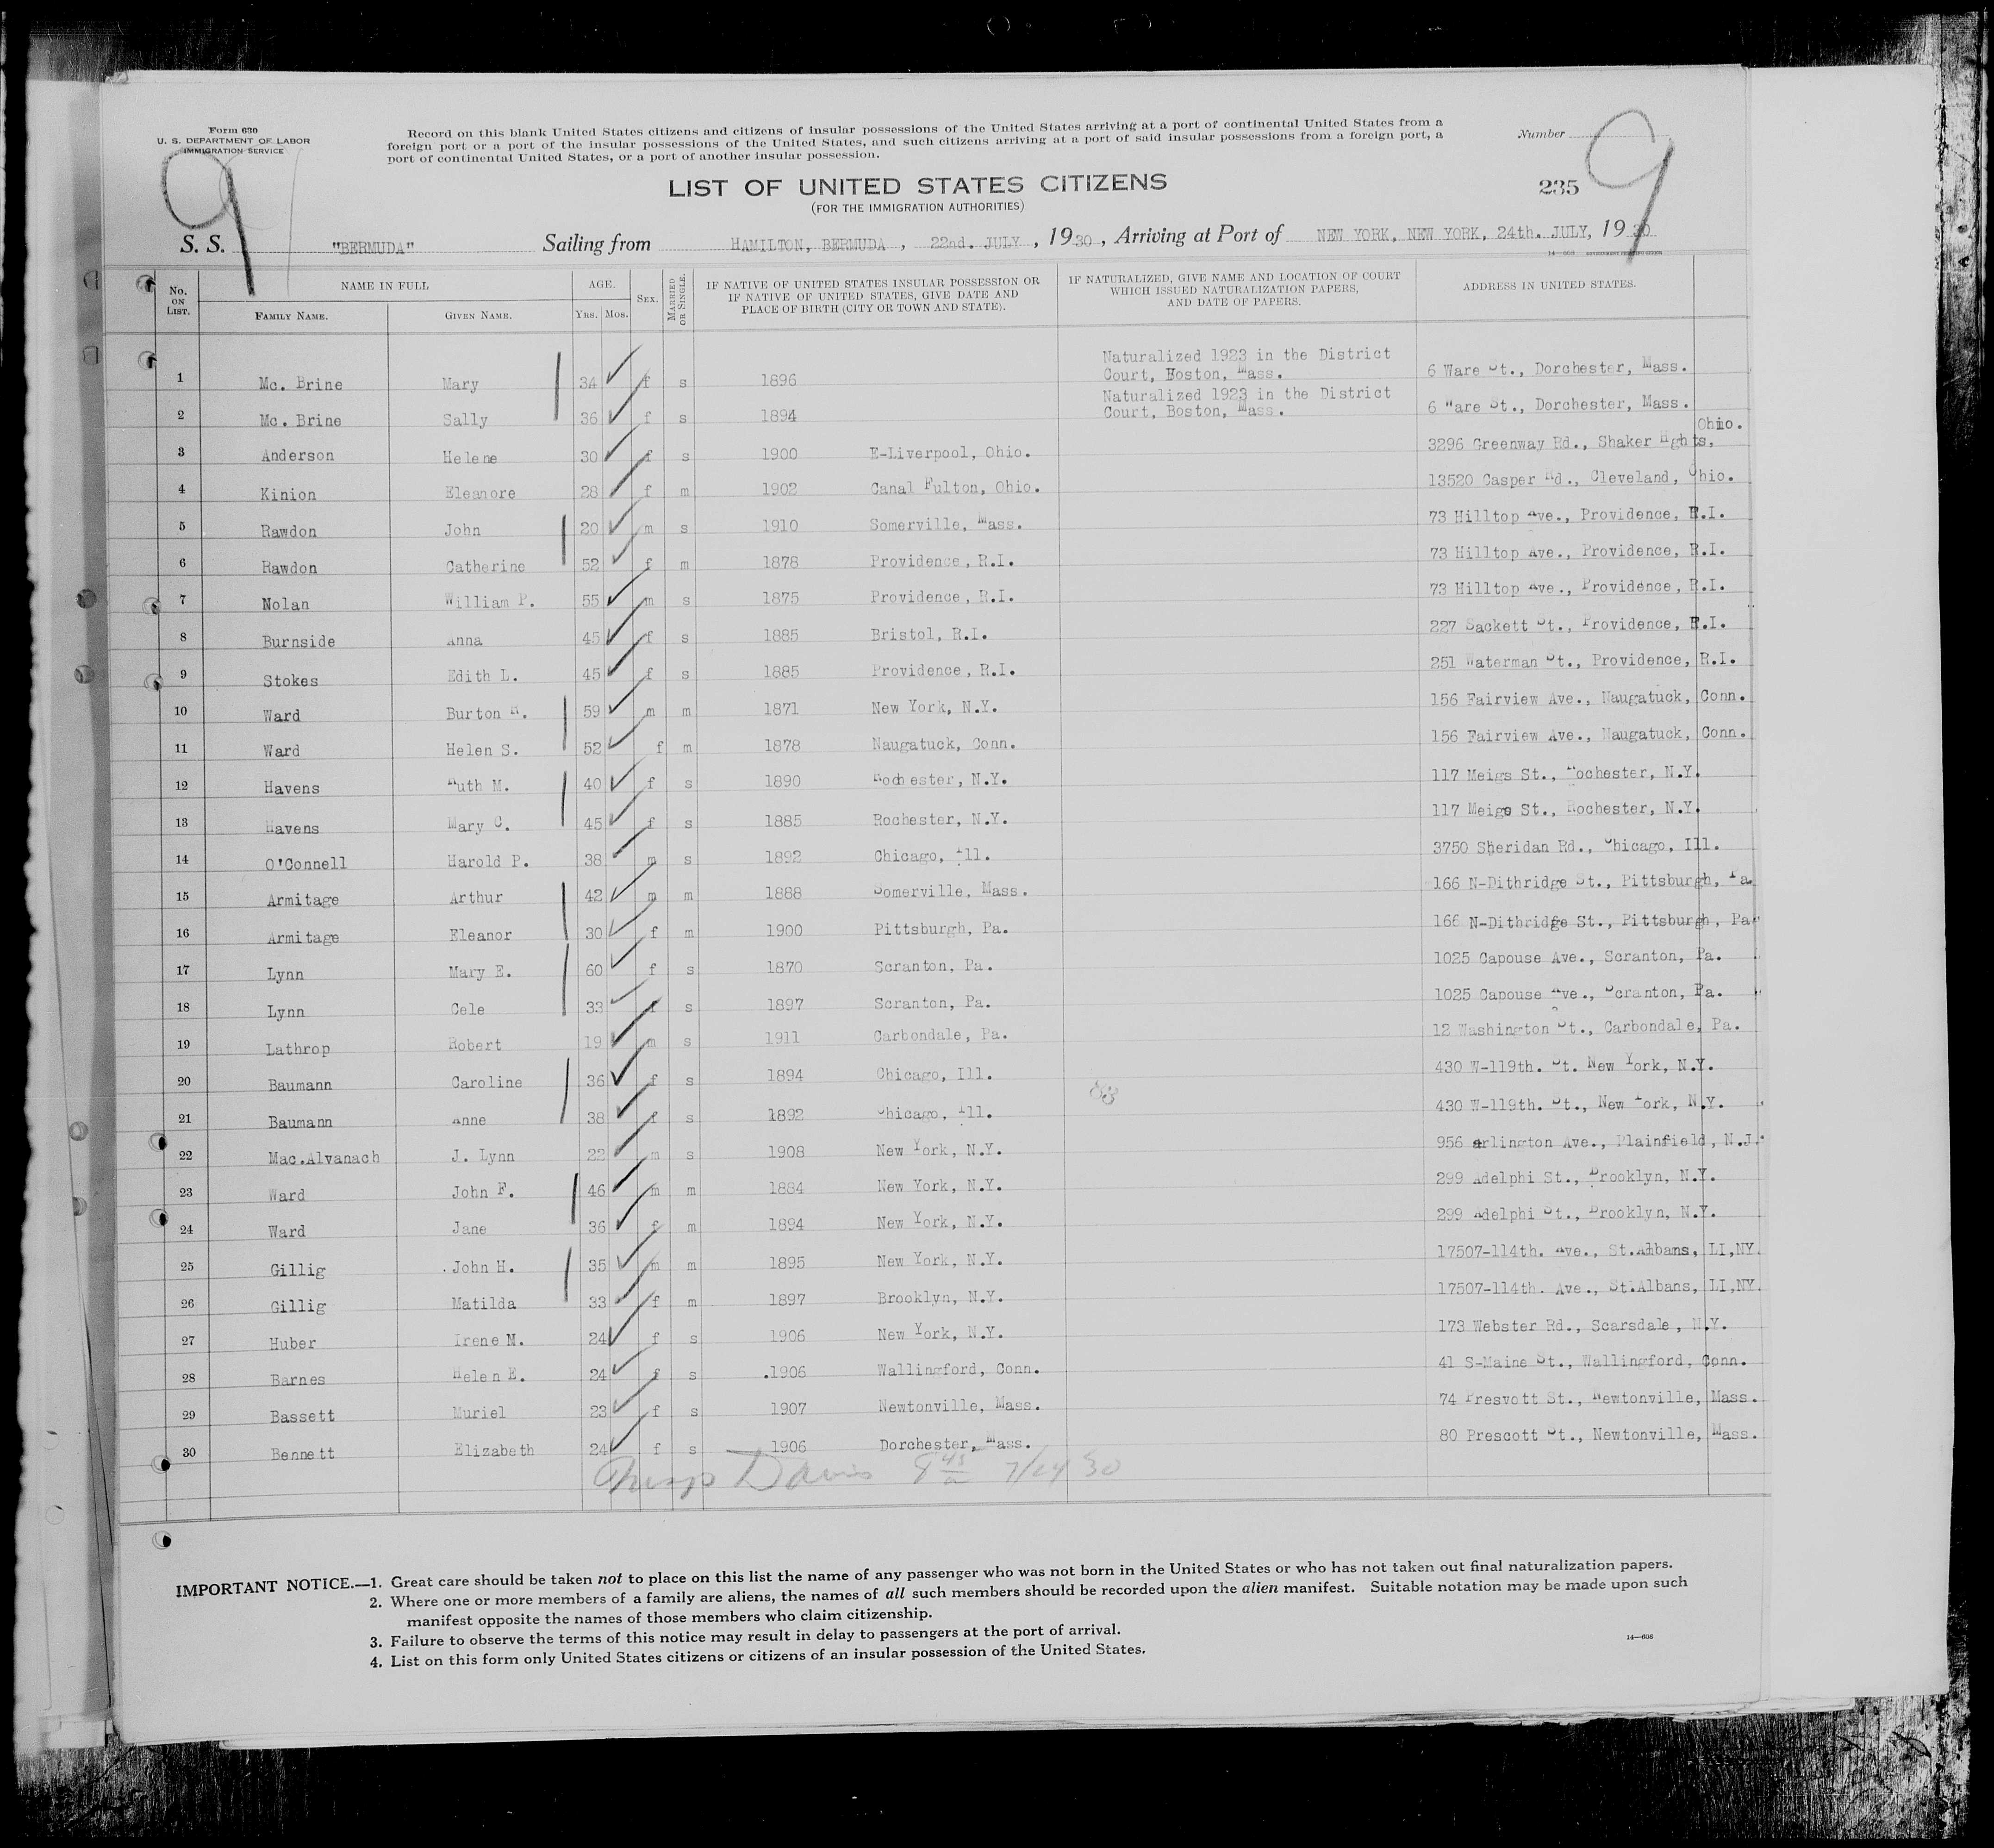 Form 630
U. S. DEPARTMENT OF LABOR
IMMIGRATION SERVICE
Record on this blank United States citizens and citizens of insular possessions of the United States arriving at a port of continental United States from a
foreign port or a port of the insular possessions of the United States, and such citizens arriving at a port of said insular possessions from a foreign port, a
port of continental United States, or a port of another insular possession.
Number 9
9
LIST OF UNITED STATES CITIZENS
235
(FOR THE IMMIGRATION AUTHORITIES)
S. S. "BERMUDA" Sailing from HAMILTON, BERMUDA , 22nd. JULY , 1930 , Arriving at Port of NEW YORK, NEW YORK, 24th. JULY, 1930
No. ON LIST. NAME IN FULL AGE. SEX. MARRIED OR SINGLE. IF NATIVE OF UNITED STATES INSULAR POSSESSION OR IF NATIVE OF UNITED STATES, GIVE DATE AND PLACE OF BIRTH (CITY OR TOWN AND STATE). IF NATURALIZED, GIVE NAME AND LOCATION OF COURT WHICH ISSUED NATURALIZATION PAPERS, AND DATE OF PAPERS. ADDRESS IN UNITED STATES.
FAMILY NAME. GIVEN NAME. YRS. MOS.
1 Mc. Brine Mary 34 f s 1896 Naturalized 1923 in the District Court, Boston, Mass. 6 Ware St., Dorchester, Mass.
2 Mc. Brine Sally 36 f s 1894 Naturalized 1923 in the District Court, Boston, Mass. 6 Ware St., Dorchester, Mass.
3 Anderson Helene 30 f s 1900 E-Liverpool, Ohio. 3296 Greenway Rd., Shaker Hghts, Ohio.
4 Kinion Eleanore 28 f m 1902 Canal Fulton, Ohio. 13520 Casper Rd., Cleveland, Ohio.
5 Rawdon John 20 m s 1910 Somerville, Mass. 73 Hilltop Ave., Providence, R.I.
6 Rawdon Catherine 52 f m 1878 Providence, R.I. 73 Hilltop Ave., Providence, R.I.
7 Nolan William P. 55 m s 1875 Providence, R.I. 73 Hilltop Ave., Providence, R.I.
8 Burnside Anna 45 f s 1885 Bristol, R.I. 227 Sackett St., Providence, R.I.
9 Stokes Edith L. 45 f s 1885 Providence, R.I. 251 Waterman St., Providence, R.I.
10 Ward Burton R. 59 m m 1871 New York, N.Y. 156 Fairview Ave., Naugatuck, Conn.
11 Ward Helen S. 52 f m 1878 Naugatuck, Conn. 156 Fairview Ave., Naugatuck, Conn.
12 Havens Ruth M. 40 f s 1890 Rochester, N.Y. 117 Meigs St., Rochester, N.Y.
13 Havens Mary C. 45 f s 1885 Rochester, N.Y. 117 Meigs St., Rochester, N.Y.
14 O'Connell Harold P. 38 m s 1892 Chicago, Ill. 3750 Sheridan Rd., Chicago, Ill.
15 Armitage Arthur 42 m m 1888 Somerville, Mass. 166 N-Dithridge St., Pittsburgh, Pa.
16 Armitage Eleanor 30 f m 1900 Pittsburgh, Pa. 166 N-Dithridge St., Pittsburgh, Pa.
17 Lynn Mary E. 60 f s 1870 Scranton, Pa. 1025 Capouse Ave., Scranton, Pa.
18 Lynn Cele 33 f s 1897 Scranton, Pa. 1025 Capouse Ave., Scranton, Pa.
19 Lathrop Robert 19 m s 1911 Carbondale, Pa. 12 Washington St., Carbondale, Pa.
20 Baumann Caroline 36 f s 1894 Chicago, Ill. 430 W-119th. St. New York, N.Y.
21 Baumann Anne 38 f s 1892 Chicago, Ill. 430 W-119th. St., New York, N.Y.
22 Mac.Alvanach J. Lynn 22 m s 1908 New York, N.Y. 956 Arlington Ave., Plainfield, N.J.
23 Ward John F. 46 m m 1884 New York, N.Y. 299 Adelphi St., Brooklyn, N.Y.
24 Ward Jane 36 f m 1894 New York, N.Y. 299 Adelphi St., Brooklyn, N.Y.
25 Gillig John H. 35 m m 1895 New York, N.Y. 17507-114th. Ave., St.Albans, LI,NY.
26 Gillig Matilda 33 f m 1897 Brooklyn, N.Y. 17507-114th. Ave., St.Albans, LI,NY.
27 Huber Irene M. 24 f s 1906 New York, N.Y. 173 Webster Rd., Scarsdale, N.Y.
28 Barnes Helen E. 24 f s 1906 Wallingford, Conn. 41 S-Maine St., Wallingford, Conn.
29 Bassett Muriel 23 f s 1907 Newtonville, Mass. 74 Presvott St., Newtonville, Mass.
30 Bennett Elizabeth 24 f s 1906 Dorchester, Mass. 80 Prescott St., Newtonville, Mass.
Davis 9 45 7/24 30
IMPORTANT NOTICE.—1. Great care should be taken not to place on this list the name of any passenger who was not born in the United States or who has not taken out final naturalization papers.
2. Where one or more members of a family are aliens, the names of all such members should be recorded upon the alien manifest. Suitable notation may be made upon such
manifest opposite the names of those members who claim citizenship.
3. Failure to observe the terms of this notice may result in delay to passengers at the port of arrival.
4. List on this form only United States citizens or citizens of an insular possession of the United States.
14—608